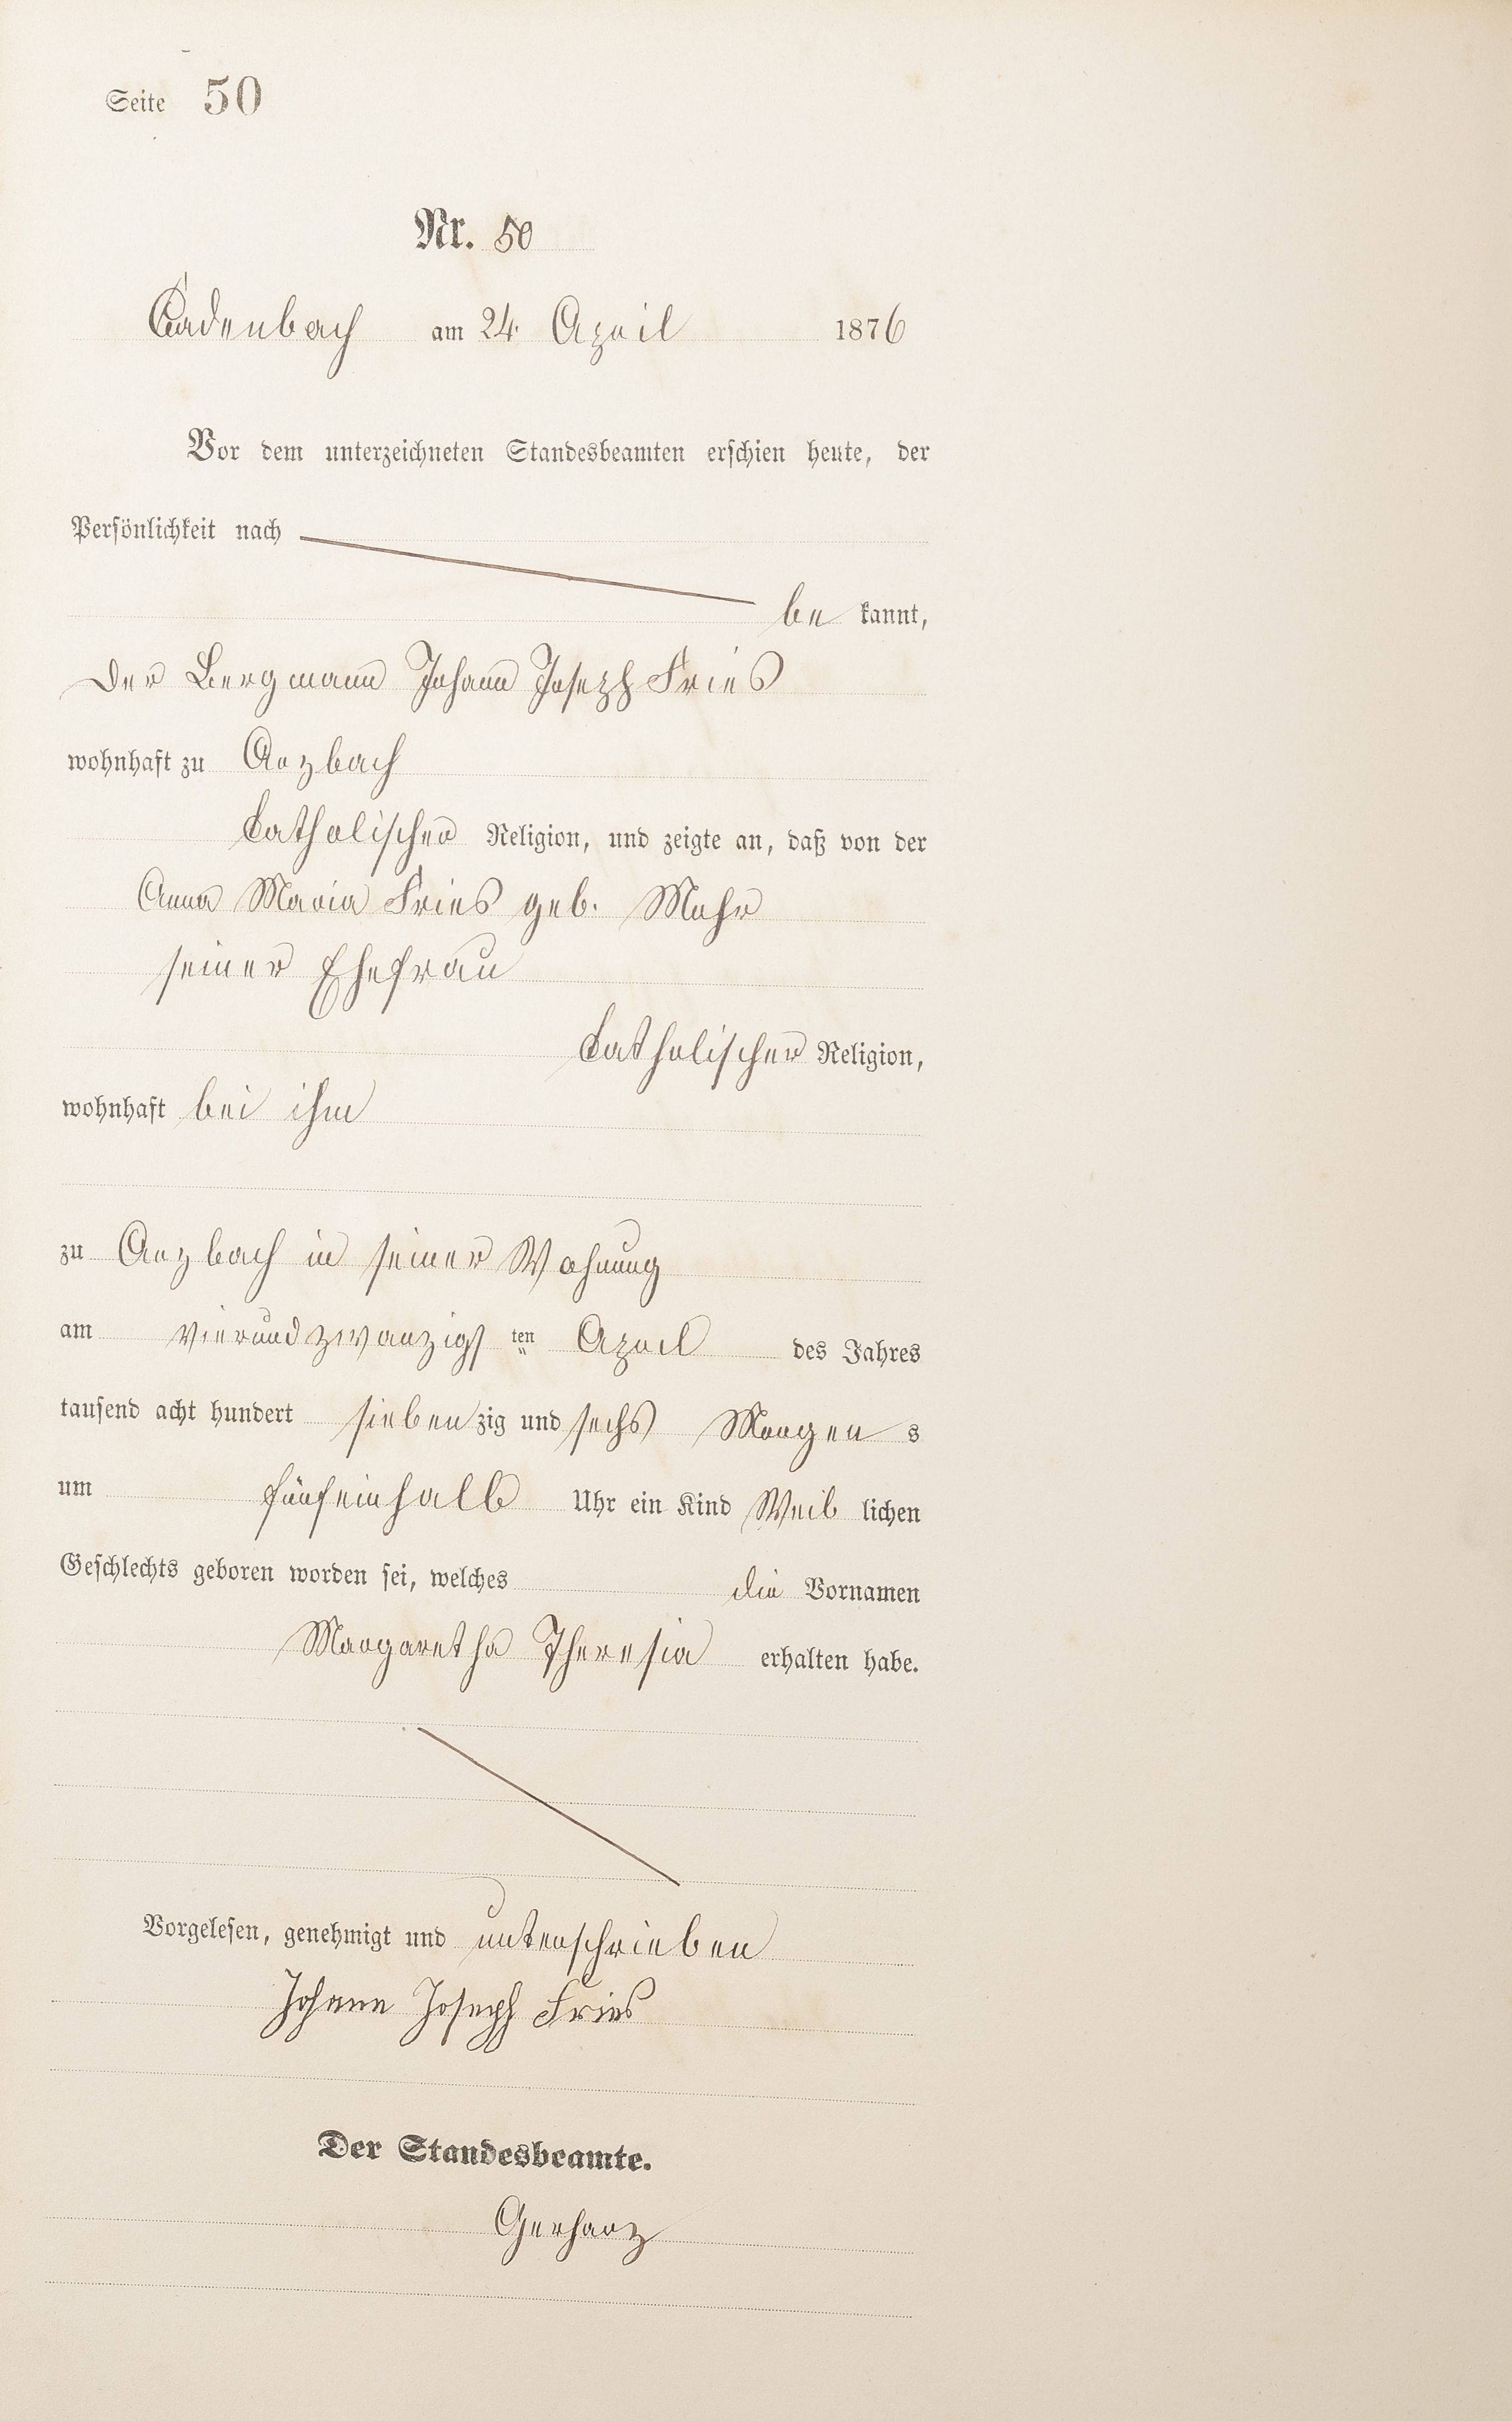 Seite 50
Nr. 50
Cadenbach am 24. April 1876
Vor dem unterzeichneten Standesbeamten erschien heute, der
Persönlichkeit nach
be kannt,
der Bergmann Johann Joseph Fries
wohnhaft zu Arzbach
katholischer Religion, und zeigte an, daß von der
Anna Maria Fries geb. Mohr
seiner Ehefrau
katholischer Religion,
wohnhaft bei ihm
zu Arzbach in seiner Wohnung
am vierundzwanzigs ten April des Jahres
tausend acht hundert sieben zig und sechs Morgen s
um fünfeinhalb Uhr ein Kind Weib lichen
Geschlechts geboren worden sei, welches die Vornamen
Margaretha Theresia erhalten habe.
Vorgelesen, genehmigt und unterschrieben
Johann Joseph Fries
Der Standesbeamte.
Gerharz